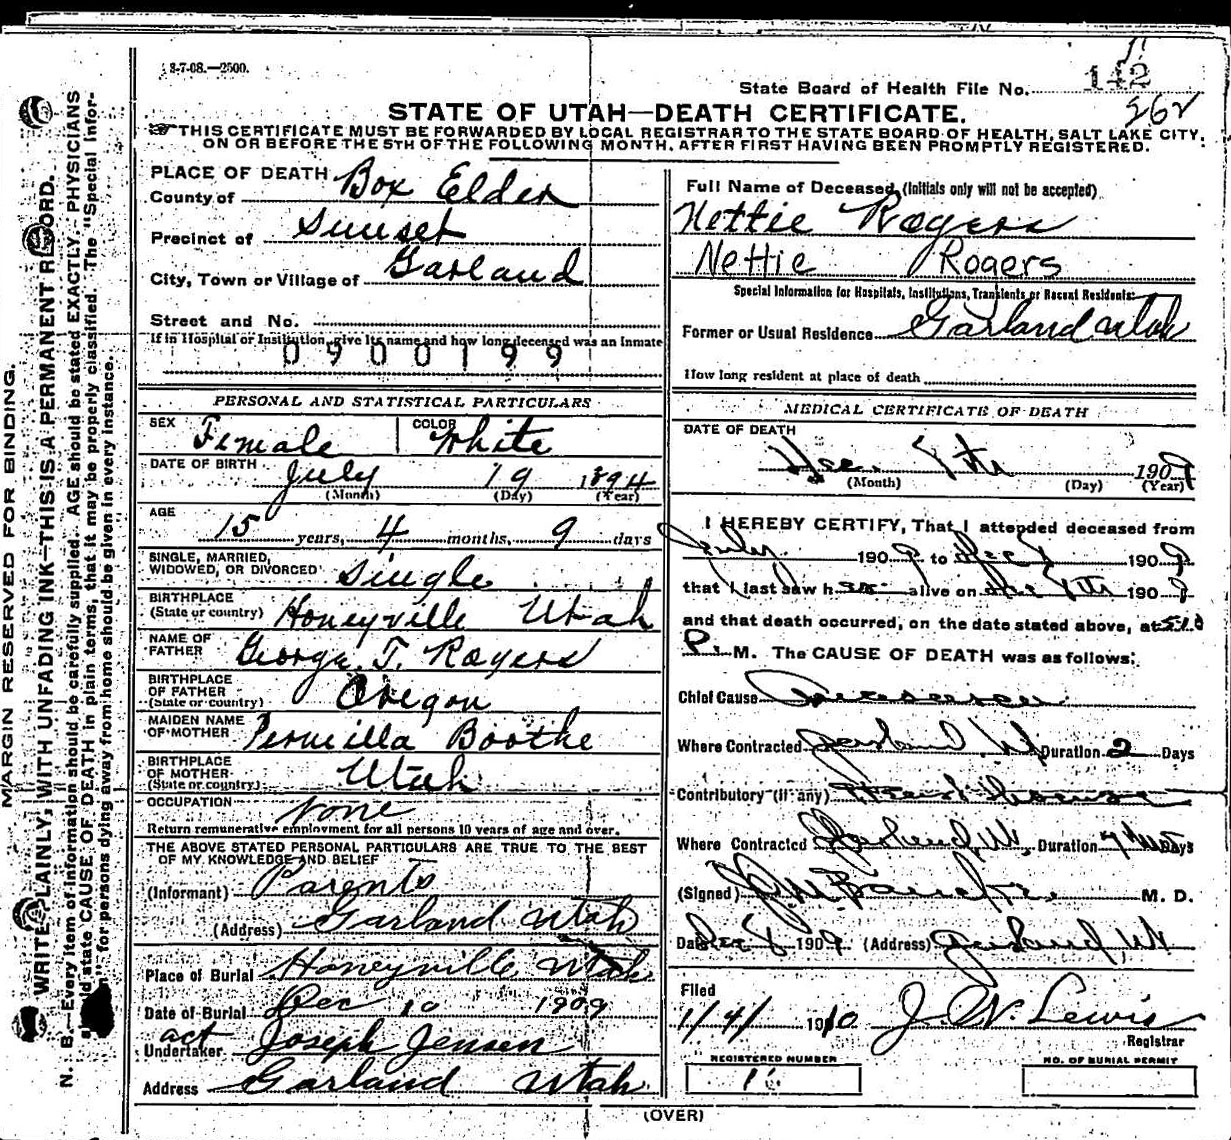 3-7-08.—2500.
State Board of Health File No. 142
262
STATE OF UTAH—DEATH CERTIFICATE.
THIS CERTIFICATE MUST BE FORWARDED BY LOCAL REGISTRAR TO THE STATE BOARD OF HEALTH, SALT LAKE CITY,
ON OR BEFORE THE 5TH OF THE FOLLOWING MONTH, AFTER FIRST HAVING BEEN PROMPTLY REGISTERED.
MARGIN RESERVED FOR BINDING.
WRITE PLAINLY, WITH UNFADING INK—THIS IS A PERMANENT RECORD.
N. B.—Every item of information should be carefully supplied. AGE should be stated EXACTLY. PHYSICIANS
should state CAUSE OF DEATH in plain terms, that it may be properly classified. The "Special Infor-
" for persons dying away from home should be given in every instance.
PLACE OF DEATH
County of Box Elder
Precinct of Sunset
City, Town or Village of Garland
Street and No.
If in Hospital or Institution, give its name and how long deceased was an Inmate
0900199
PERSONAL AND STATISTICAL PARTICULARS
SEX Female COLOR White
DATE OF BIRTH July 19 1894
(Month) (Day) (Year)
AGE 15 years, 4 months, 9 days
SINGLE, MARRIED,
WIDOWED, OR DIVORCED Single
BIRTHPLACE
(State or country) Honeyville Utah
NAME OF
FATHER George T. Rogers
BIRTHPLACE
OF FATHER
(State or country) Oregon
MAIDEN NAME
OF MOTHER Permilla Boothe
BIRTHPLACE
OF MOTHER
(State or country) Utah
OCCUPATION None
Return remunerative employment for all persons 10 years of age and over.
THE ABOVE STATED PERSONAL PARTICULARS ARE TRUE TO THE BEST
OF MY KNOWLEDGE AND BELIEF
(Informant) Parents
(Address) Garland Utah
Place of Burial Honeyville Utah
Date of Burial Dec 10 1909
act
Undertaker Joseph Jensen
Address Garland Utah
Full Name of Deceased (Initials only will not be accepted)
Nettie Rogers
Nettie Rogers
Special Information for Hospitals, Institutions, Transients or Recent Residents:
Former or Usual Residence Garland Utah
How long resident at place of death
MEDICAL CERTIFICATE OF DEATH
DATE OF DEATH
Dec. 8th 1909
(Month) (Day) (Year)
I HEREBY CERTIFY, That I attended deceased from
July 1909 to Dec 8 1909
that I last saw her alive on Dec 8th 1909
and that death occurred, on the date stated above, at
P. M. The CAUSE OF DEATH was as follows:
Chief Cause
Where Contracted Garland Ut Duration 2 Days
Contributory (if any)
Where Contracted Garland Ut. Duration Days
(Signed) M. D.
Date Dec 8 1909 (Address) Garland Ut
Filed
1/4/ 1910 J. W. Lewis
Registrar
REGISTERED NUMBER
NO. OF BURIAL PERMIT
(OVER)